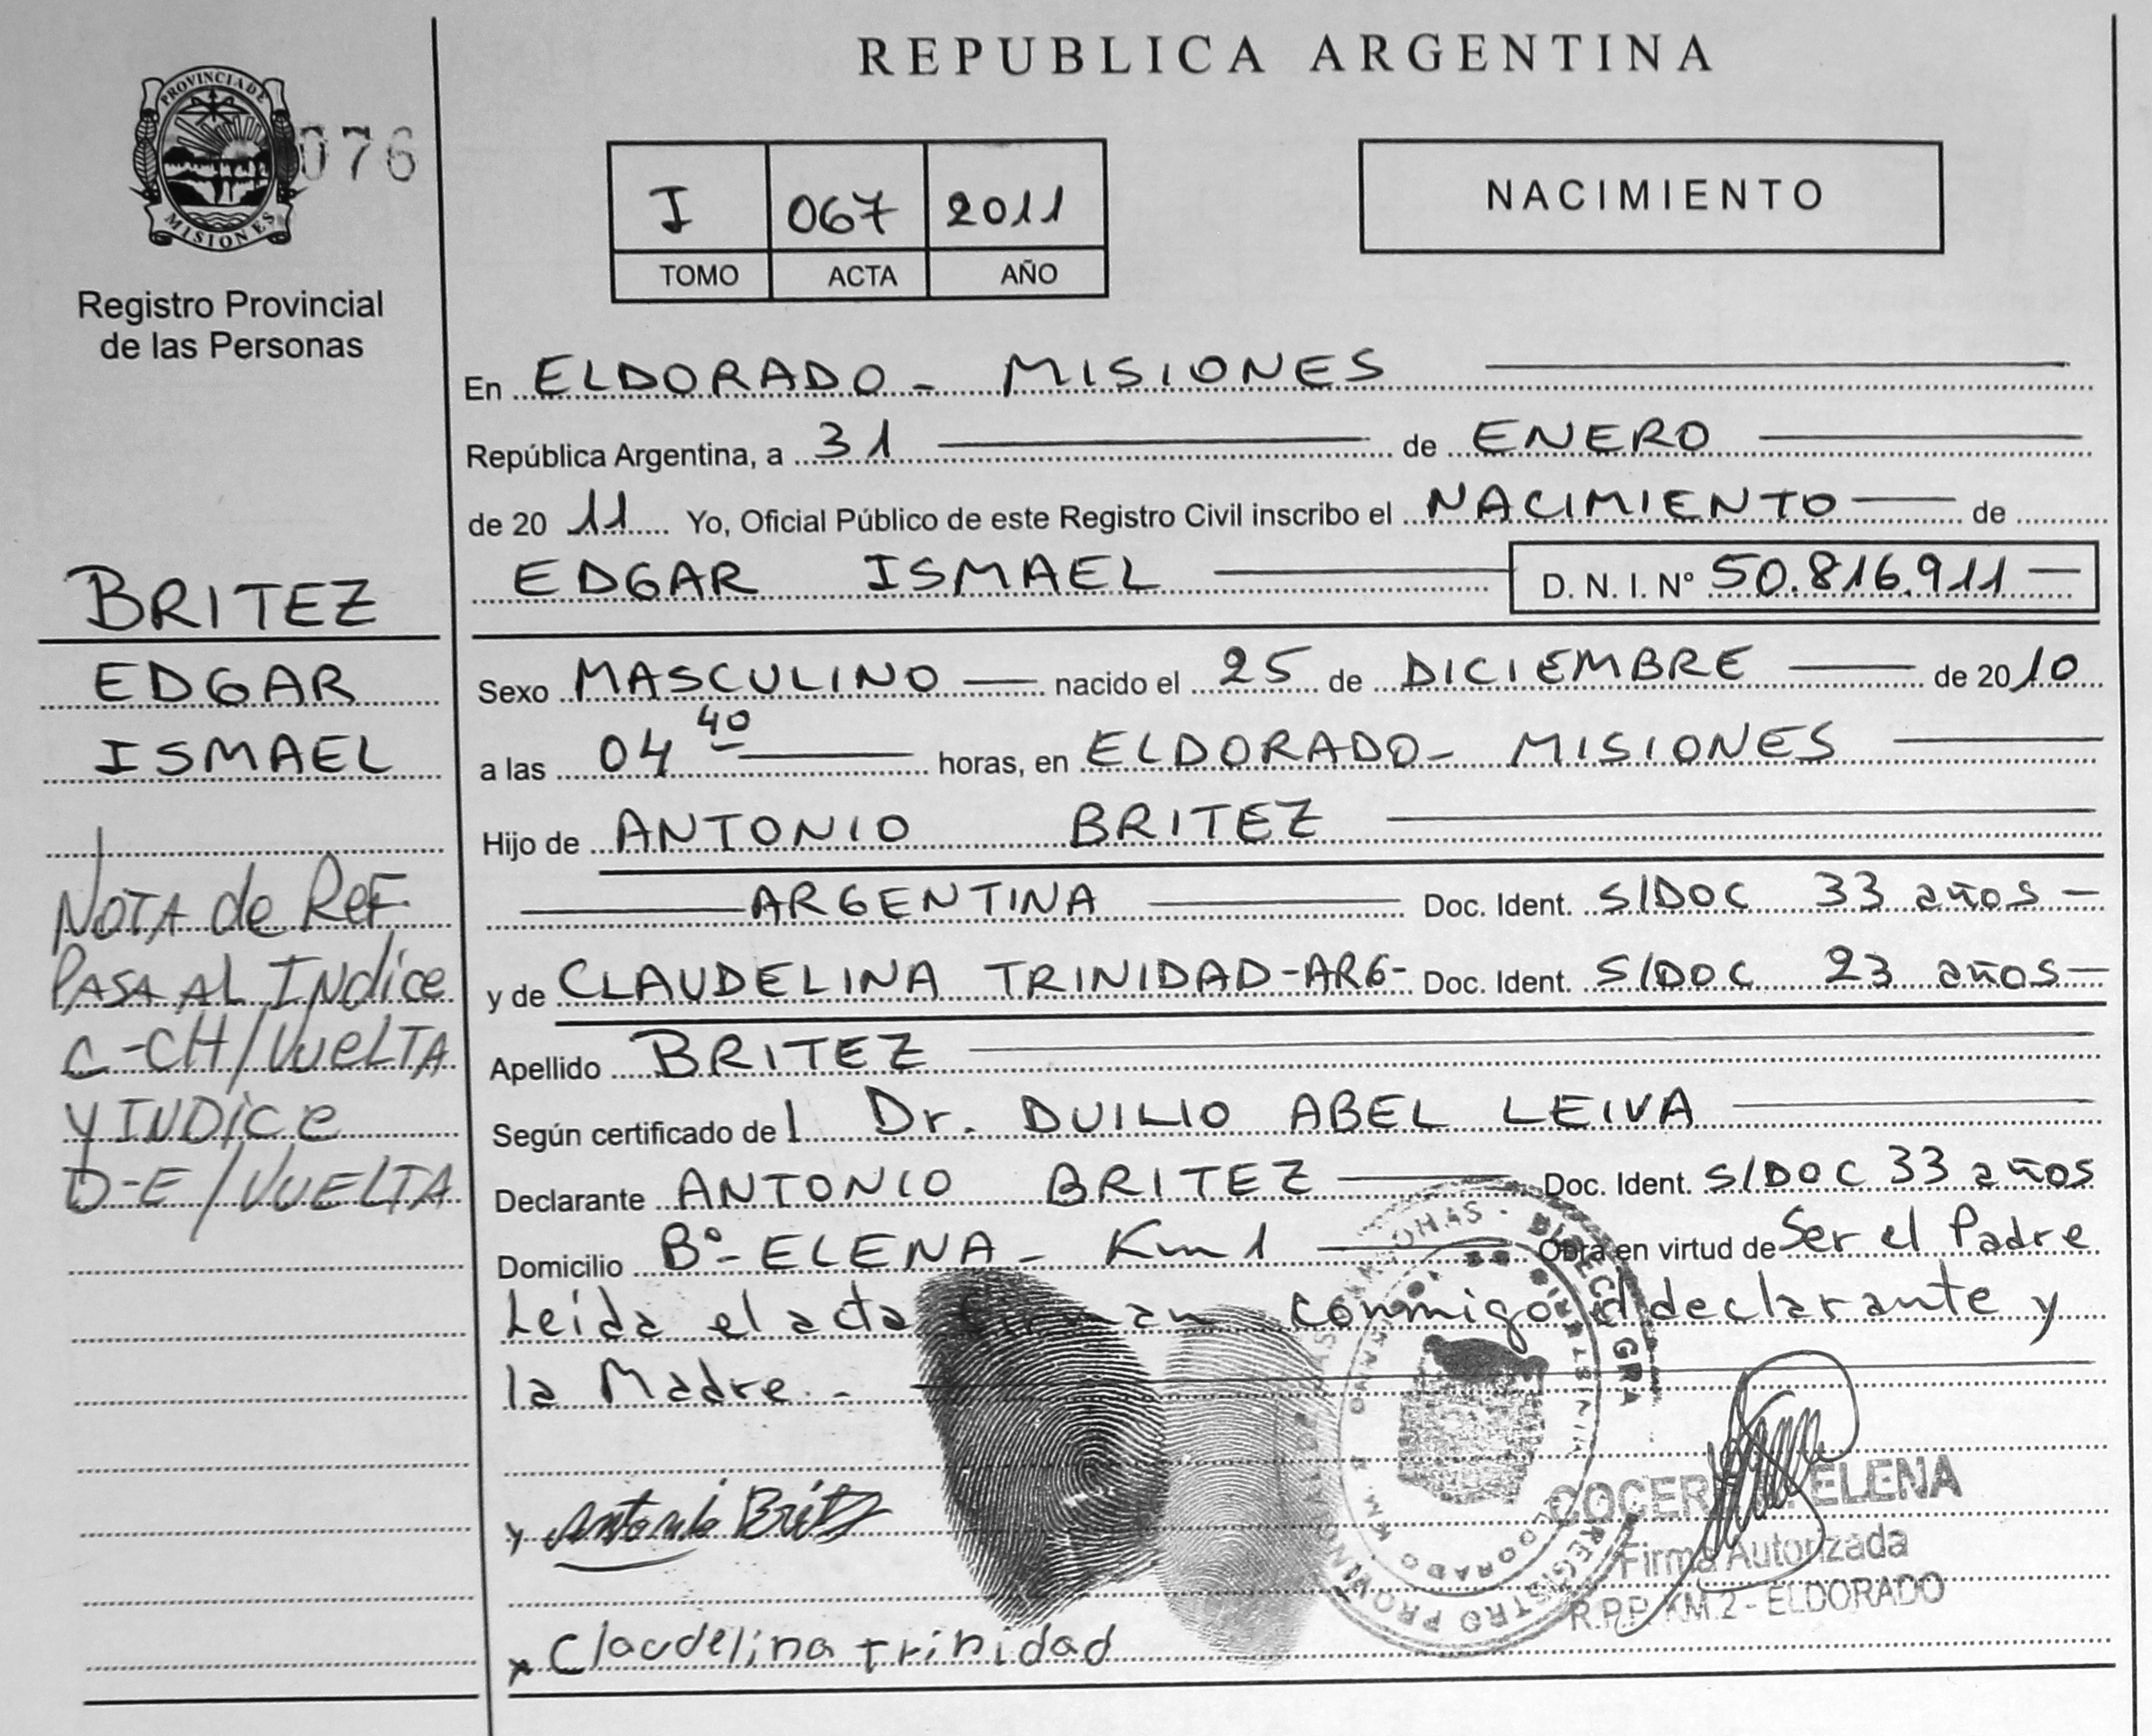 REPUBLICA ARGENTINA
PROVINCIA DE
MISIONES
076
Registro Provincial
de las Personas
I 067 2011
TOMO ACTA AÑO
NACIMIENTO
En ELDORADO - MISIONES
República Argentina, a 31 de ENERO
de 20 11 Yo, Oficial Público de este Registro Civil inscribo el NACIMIENTO de
EDGAR ISMAEL D. N. I. Nº 50.816.911
BRITEZ
EDGAR
ISMAEL
NOTA de REF.
PASA AL INdice
C-CH/VUELTA
Y INDice
D-E/VUELTA
Sexo MASCULINO nacido el 25 de DICIEMBRE de 2010
a las 04 40 horas, en ELDORADO - MISIONES
Hijo de ANTONIO BRITEZ
ARGENTINA Doc. Ident. S/DOC 33 años
y de CLAUDELINA TRINIDAD-ARG- Doc. Ident. S/DOC 23 años
Apellido BRITEZ
Según certificado del Dr. DUILIO ABEL LEIVA
Declarante ANTONIO BRITEZ Doc. Ident. S/DOC 33 años
Domicilio Bº- ELENA - Km 1 Obra en virtud de Ser el Padre
Leída el acta firman conmigo el declarante y
la Madre.-
Antonio Britz
Claudelina trinidad
ELENA
Firma Autorizada
R.P.P. KM.2 - ELDORADO
REGISTRO